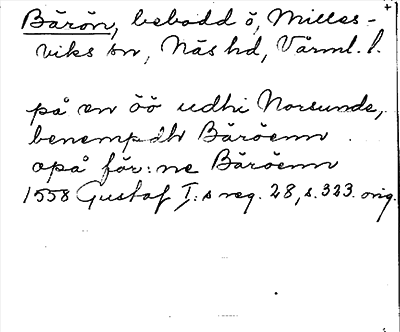 Bärön, bebodd ö, Milles-
viks sn, Näs hd, Värml. l.
på en öö udhi Norsunde,
benempdh Bäröenn
opå för:ne Bäröenn
1558 Gustaf I:s reg. 28, s. 323. orig.